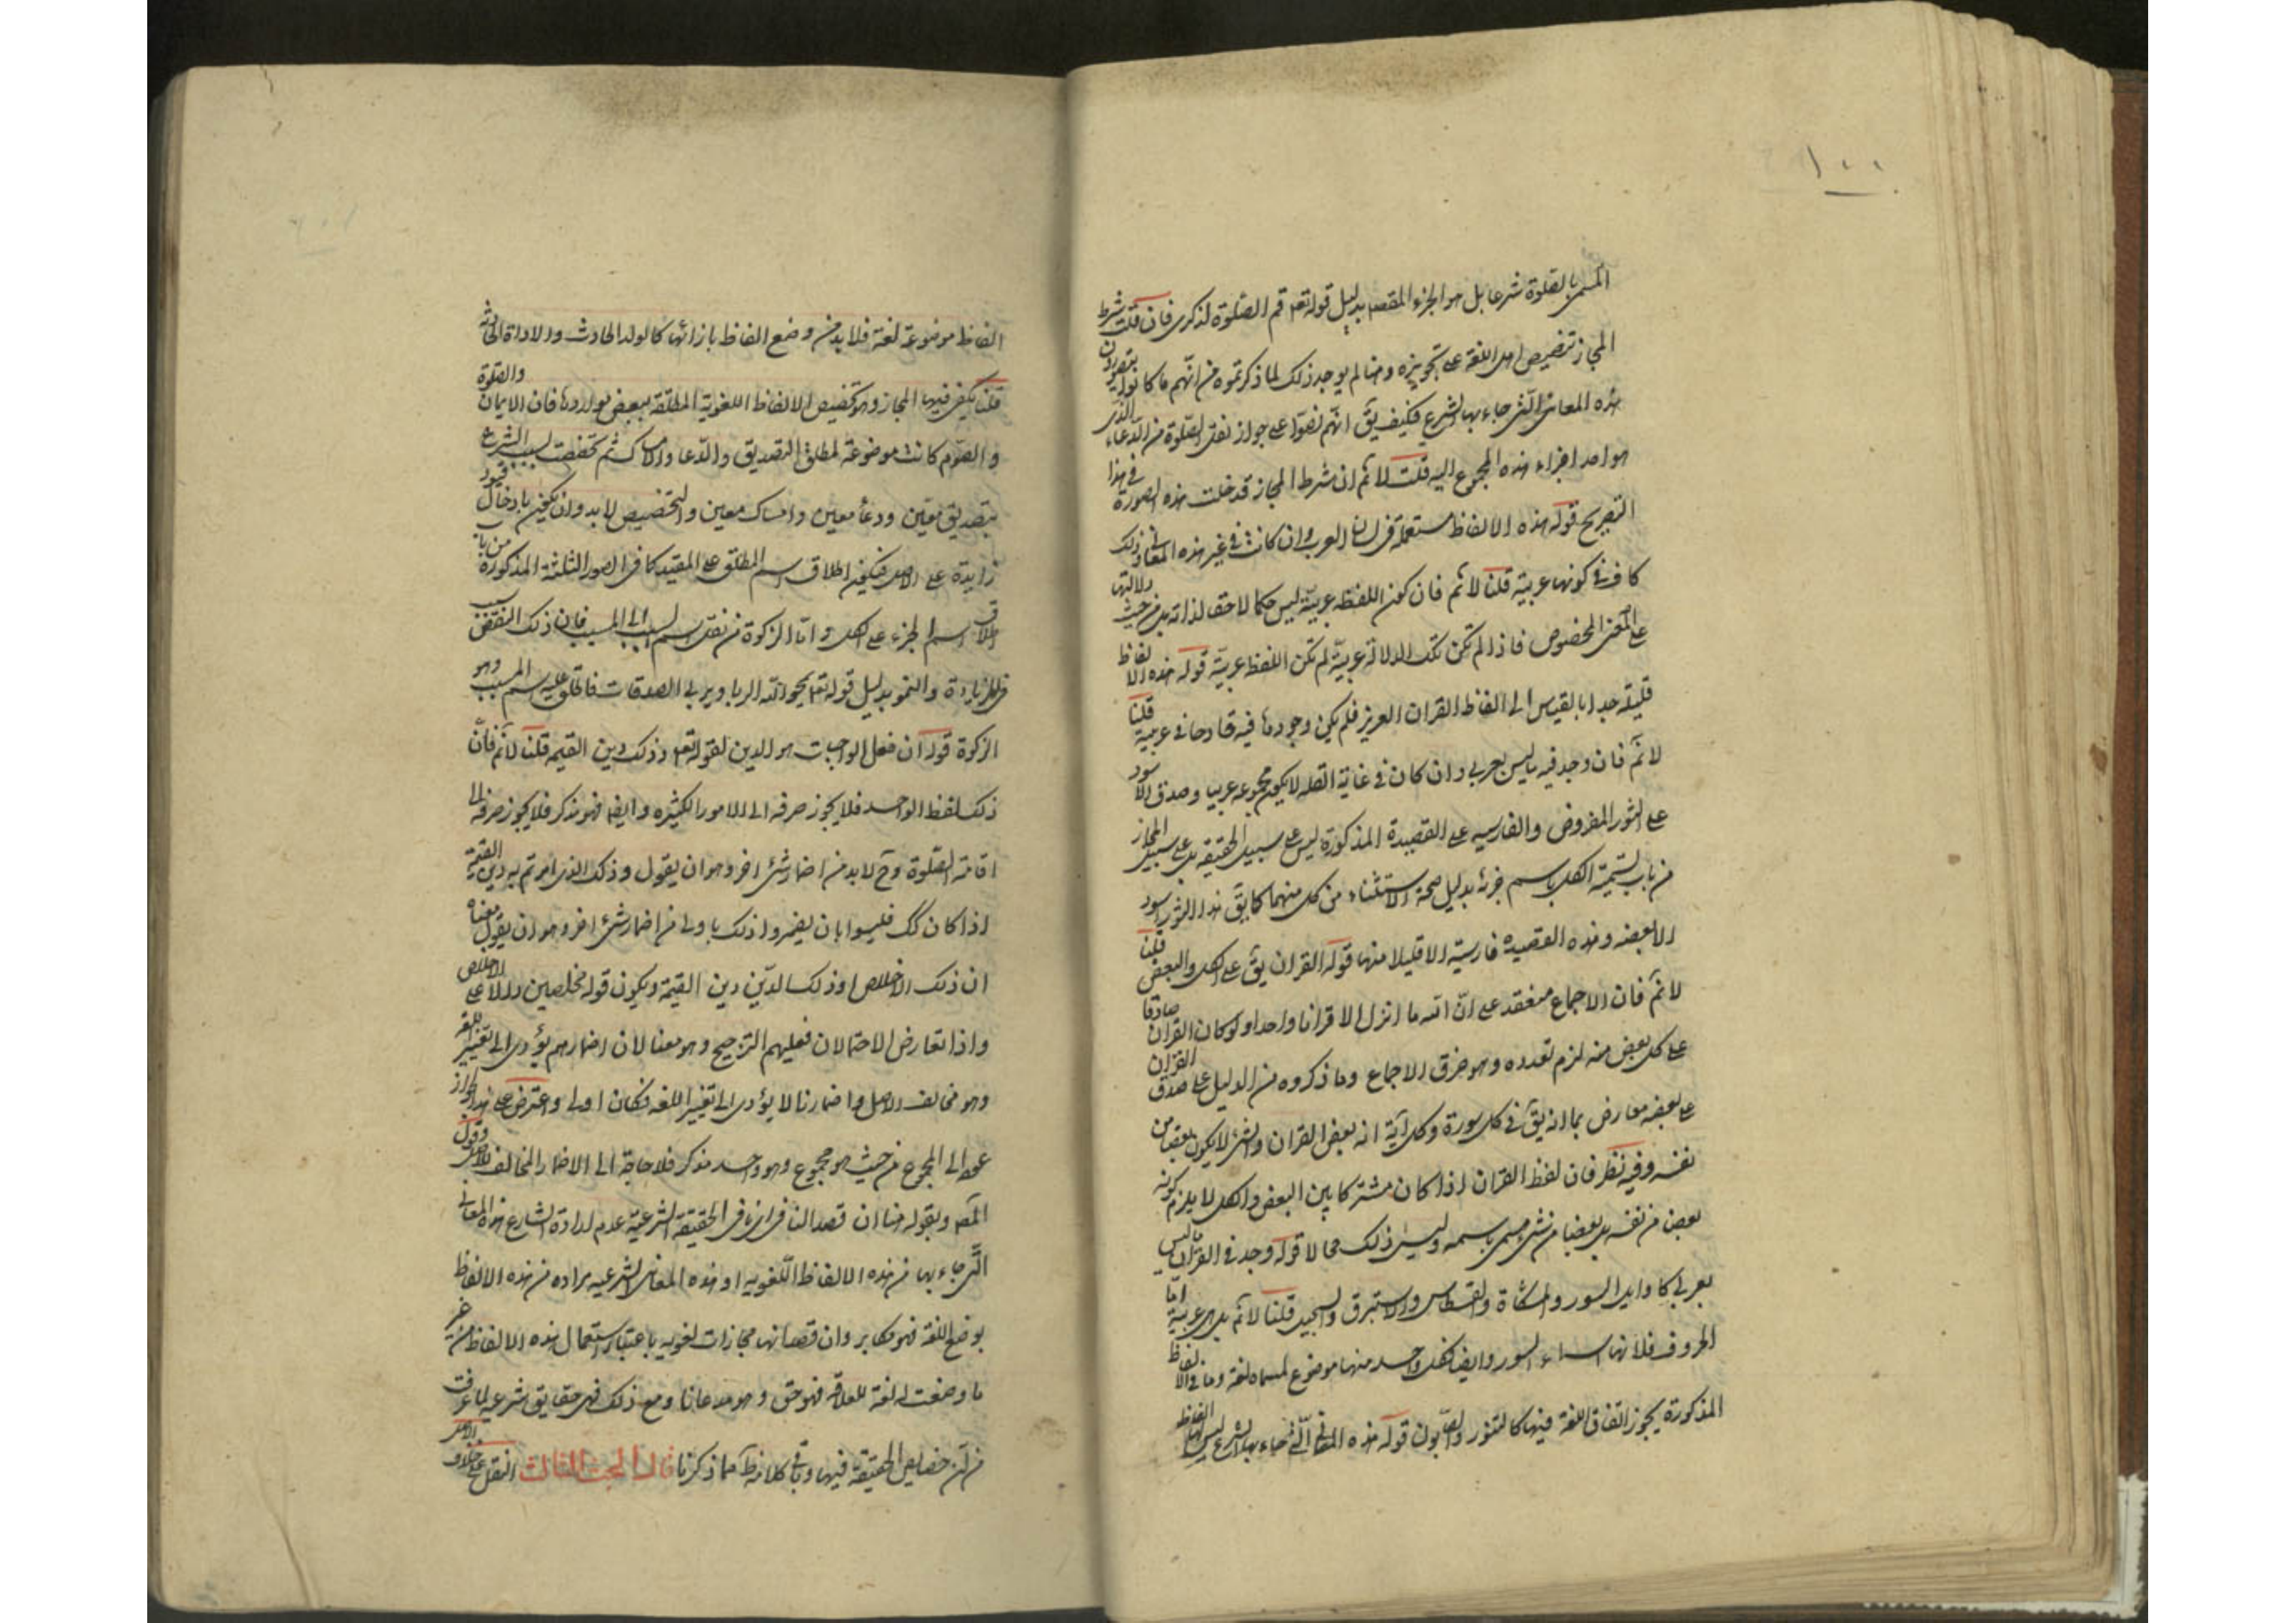 ١٠٠
المسمى بالصلوة شرعا بل هو الجزء المقصد بدليل قوله تعم قم الصلوة لذكرى فان قلت شرط
المجاز تنصيص اهل اللغة على تجويزه وهنا لم يوجد ذلك لما ذكرتموه من انهم ما كانوا يتصورون
هذه المعانى التى جاء بها الشرع فكيف يق انهم نصوا على جواز نقل الصلوة من الدعاء الذى
هو احد اجزاء هذه المجموع اليه قلت لا نم ان شرط المجاز قد خلت هذه الصورة فى هذا
التصريح قوله هذه الالفاظ مستعملة فى لسان العرب وان كانت فى غير هذه المعانى وذلك
كاف فى كونها عربية قلنا لا نم فان كون اللفظه عربية ليس حكما لاحقا لذاته بل من حيث دلالتها
على المعنى المخصوص فاذا لم تكن تلك الدلالة عربية لم تكن اللفظ عربية قوله هذه الالفاظ
قليلة جدا بالقيس الى الفاظ القران العزيز فلم يكن وجودها فيه قادحا فى عربيته قلنا
لا نم فان وجد فيه ما ليس بعربى وان كان فى غاية القله لا يكون مجموعه عربيا وصدق الاسود
على الثور المفروض والفارسيه على القصيدة المذكورة ليس على سبيل الحقيقه بل على سبيل المجاز
من باب تسمية الكل باسم جزئه بدليل صحة الاستثناء من كل منهما كما يق هذا الثور اسود
الا بعضه وهذه القصيده فارسية الا قليلا منها قوله القران يق على الكل والبعض قلنا
لا نم فان الاجماع منعقد على ان الله ما انزل الا قرانا واحدا ولو كان القران صادقا
على كل بعض منه لزم تعدده وهو خرق الاجماع وما ذكروه من الدليل على صدق القران
على بعضه معارض بما انه يق فى كل سورة وكل آية انه بعض القران والشىء لا يكون بعضا من
نفسه وفيه نظر فان لفظ القران اذا كان مشتركا بين البعض والكل لا يلزم كونه
بعض من نفسه بل بعضا من شىء مسمى باسمه وليس ذلك محالا قوله وجد فى القران ما ليس
بعربى كاوايل السور والمشكاة والقسطاس والاستبرق والسجيل قلنا لا نم بل هى عربية اما
الحروف فلانها اسماء السور وايضا فكل واحد منها موضوع لمسماه لغة وما فى الالفاظ
المذكورة يجوز اتفاق اللغة فيها كالتنور والصابون قوله هذه المعانى التى جاء بها الشرع ليس لها الفاظ
الفاظ موضوعة لغة فلا بد من وضع الفاظ بازائها كالولد الحادث والاداة الحادثة
قلنا يكفى فيها المجاز وهو تخصيص الالفاظ اللغوية المطلقة ببعض مواردها فان الايمان والصلوة
والصوم كانت موضوعة لمطلق التصديق والدعا والامساك ثم تخصصت بسبب الشرع
بتصديق معين ودعاء معين وامساك معين والتخصيص لا بد وان يكون بادخال قيود
زايدة على الاصل فيكون اطلاق اسم المطلق على المقيد كما فى الصور الثلثة المذكورة من باب
اطلاق اسم الجزء على الكل واما الزكوة من نقل اسم السبب الى المسبب فان ذلك النقص سبب
للزيادة والنمو بدليل قوله تعم يمحو الله الربا ويربى الصدقات فاطلق عليه اسم المسبب وهو
الزكوة قوله ان فعل الواجبات هو الدين لقوله تعم وذلك دين القيمه قلنا لا نم فان
ذلك لفظ الواحد فلا يجوز صرفه الى الامور الكثيره وايضا فهو مذكر فلا يجوز صرفه الى
اقامة الصلوة وح لا بد من اضمار شىء اخر وهو ان يقول وذلك الذى امرتم به دين القيمة
اذا كان كك فليسوا بان يضمروا ذلك باولى من اضمار شىء اخر وهو ان يقول معناه
ان ذلك الاخلاص او ذلك الدين دين القيمة ويكون قوله مخلصين دالا على الاخلاص
واذا تعارض الاحتمالان فعليهم الترجيح وهو معنا لان اضمارهم يؤدى الى تغيير اللغه
وهو مخالف الاصل واضمارنا لا يؤدى الى تغيير اللغه فكان اولى واعترض على هذا لجواز
عوده الى المجموع من حيث هو مجموع وهو واحد مذكر فلا حاجة الى الاضمار المخالف للاصل وقول
المصم وبقوله هنا ان قصد النافى انافى الحقيقة الشرعية عدم ارادة الشارع هذه المعانى
التى جاء بها من هذه الالفاظ اللغويه او هذه المعانى الشرعيه مراده من هذه الالفاظ
بوضع اللغة فهو مكابر وان قصد انها مجازات لغويه باعتبار استعمال هذه الالفاظ فى غير
ما وضعت له لغة للعلاقه فهو حق وهو مدعانا ومع ذلك فهى حقايق شرعيه لما عرفت
من خصايص الحقيقة فيها وباقى كلامه ظ مما ذكرنا قال البحث الثالث النقل على خلاف الاصل